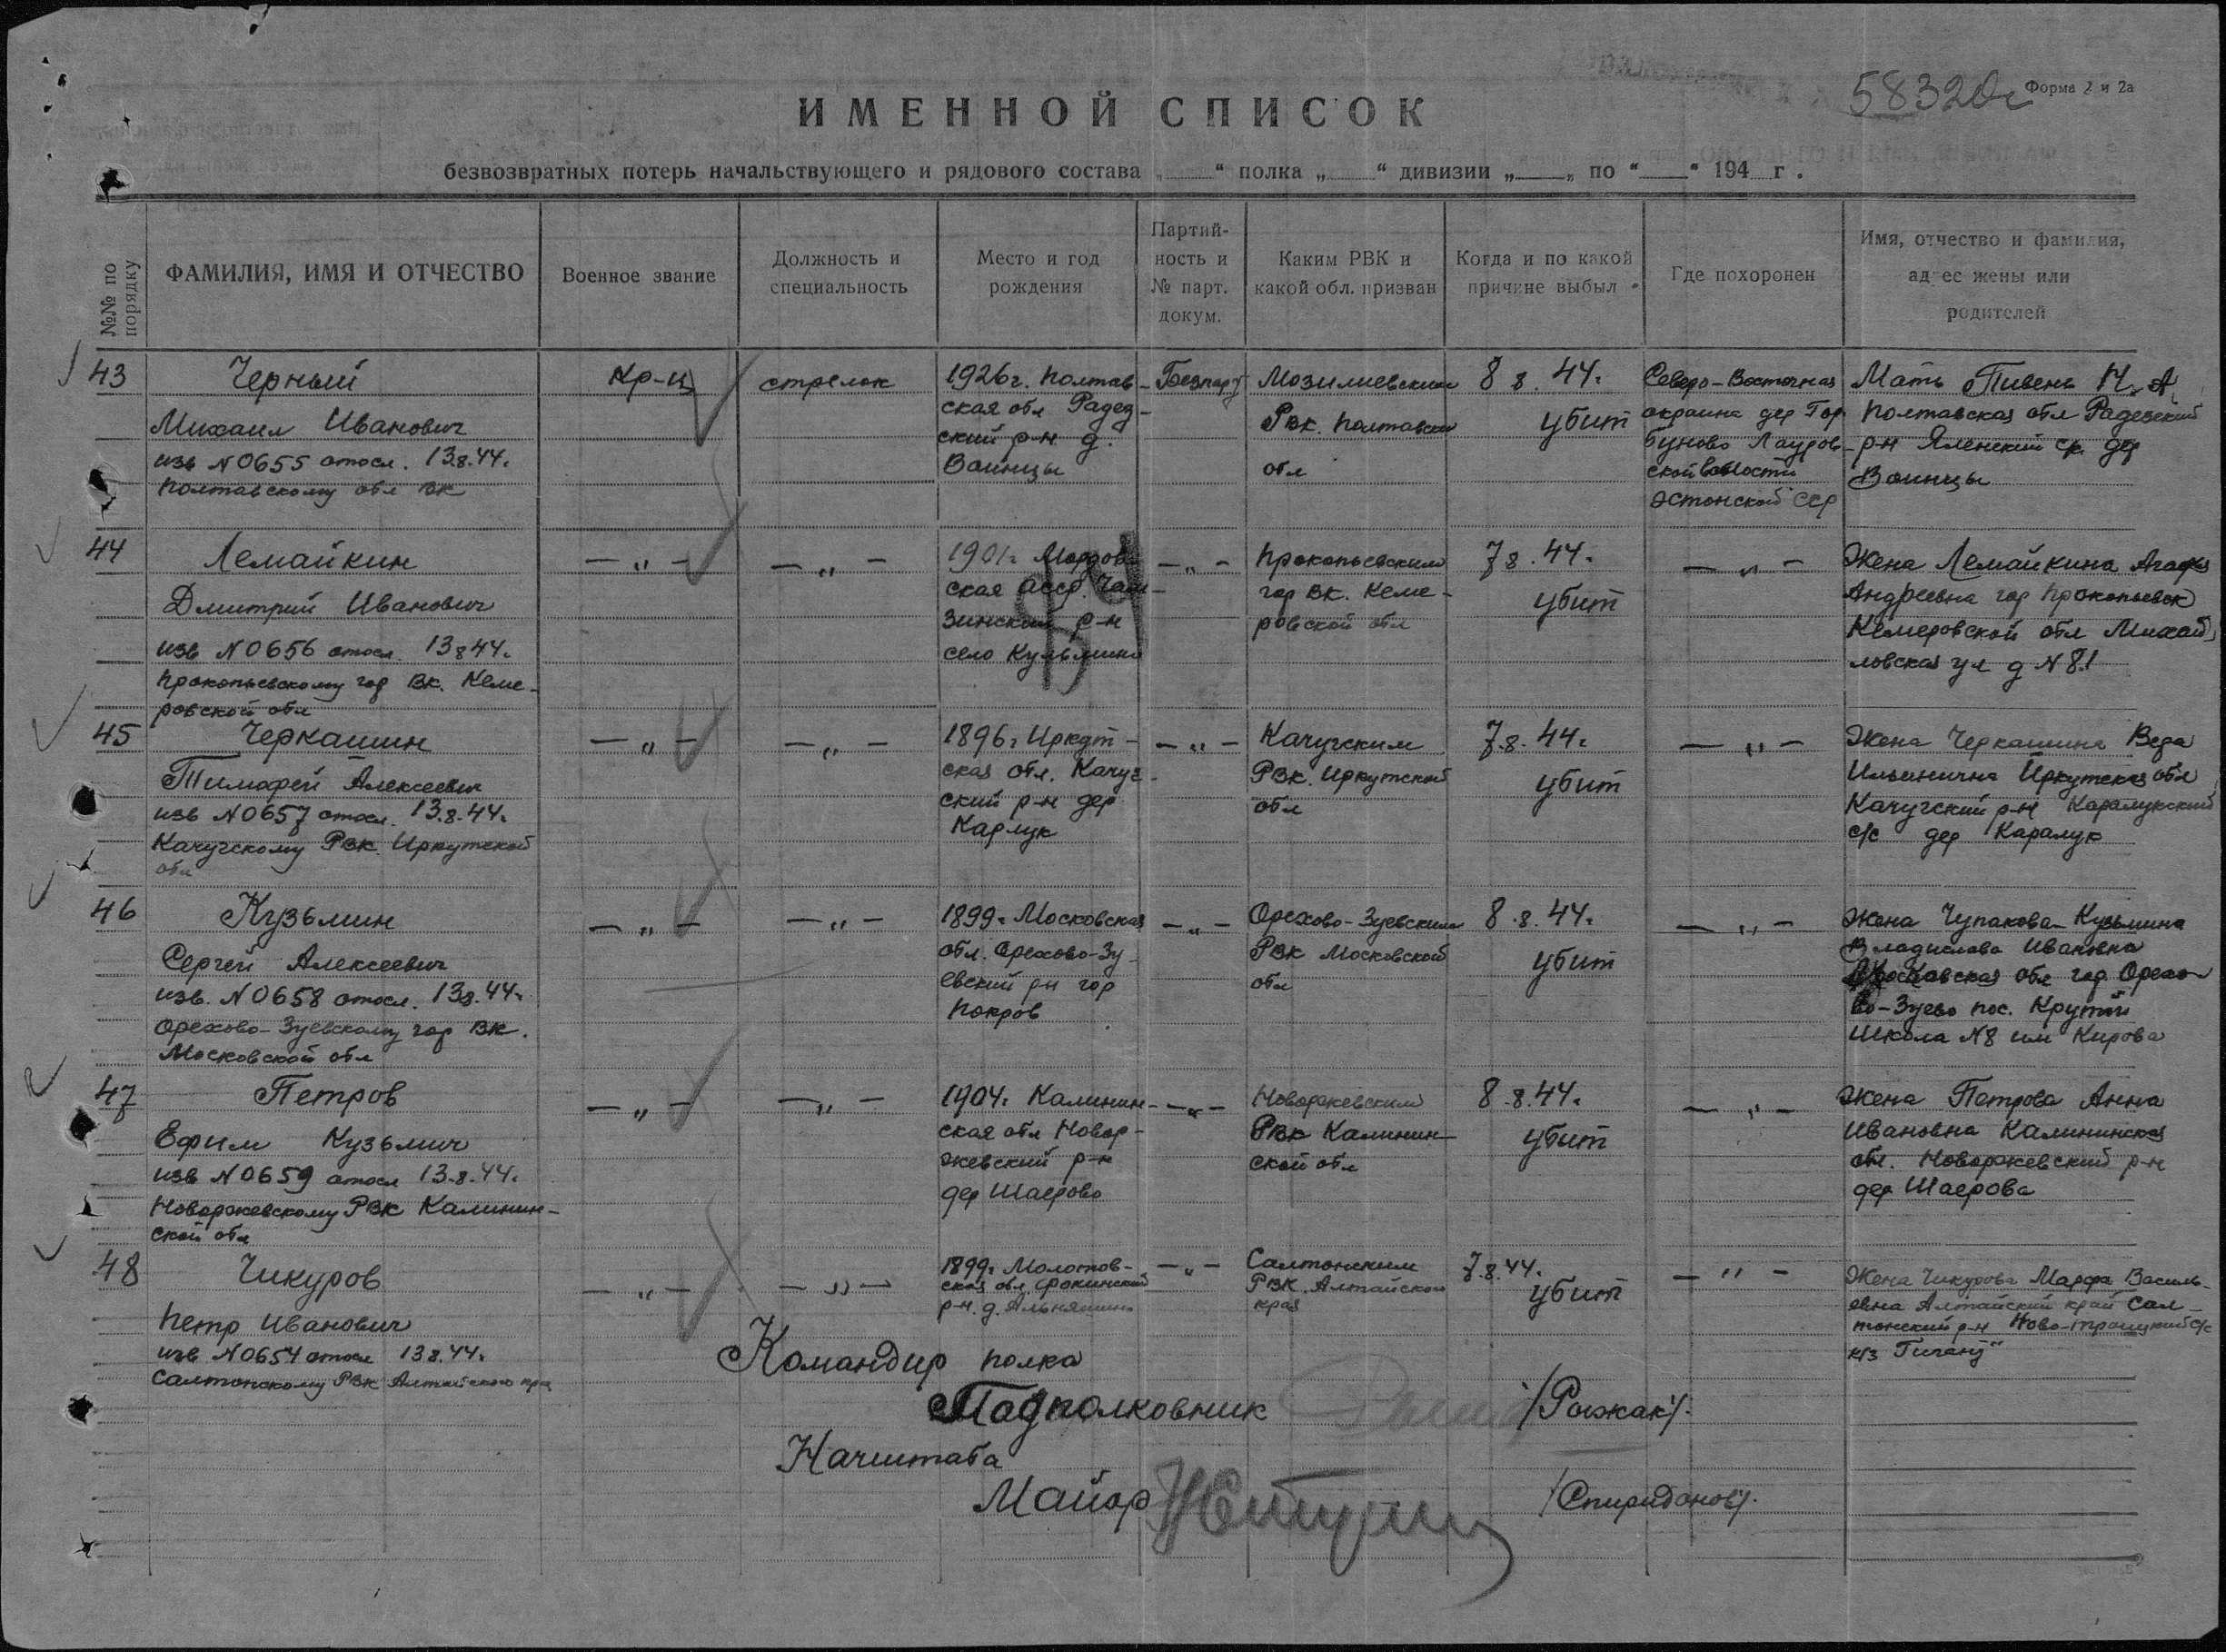 58320с Форма 2 и 2а
ИМЕННОЙ СПИСОК
безвозвратных потерь начальствующего и рядового состава „ “ полка „ “ дивизии „ „ по “ “ 194 г.
№№ по порядку
ФАМИЛИЯ, ИМЯ И ОТЧЕСТВО
Военное звание
Должность и
специальность
Место и год
рождения
Партий-
ность и
№ парт.
докум.
Каким РВК и
какой обл. призван
Когда и по какой
причине выбыл
Где похоронен
Имя, отчество и фамилия,
адрес жены или
родителей
43
Черный
Михаил Иванович
изв N0655 отосл. 13.8.44г
Полтавскому обл ВК
Кр-ц
стрелок
1926г. Полтав-
ская обл Радед-
ский р-н д.
Воинцы
Безпарт
Мозилиевским
Рвк. Полтавской
обл
8.8.44г
убит
Северо-Восточная
окраина дер Гор
буново Лауров-
ской волости
Эстонской ССР
Мать Пивень М.А
Полтавская обл Радевский
р-н Яленский с/с дер
Воинцы
44
Лемайкин
Дмитрий Иванович
изв N0656 отосл. 13.8.44г
Прокопьевскому гор ВК. Кеме-
ровской обл
— „ —
— „ —
1901г Мордов
ская асср. Чам-
зинский р-н
село Кульмино
— „ —
Прокопьевским
гор ВК. Кеме-
ровской обл
7.8.44г
убит
— „ —
Жена Лемайкина Агафья
Андреевна гор Прокопьевск
Кемеровской обл Михай
ловская ул д N81
45
Черкашин
Тимофей Алексеевич
изв N0657 отосл. 13.8.44г
Качугскому РВК Иркутской
обл
— „ —
— „ —
1896г Иркут-
ская обл. Качуг-
ский р-н дер
Карлук
— „ —
Качугским
РВК. Иркутской
обл
7.8.44г
убит
— „ —
Жена Черкашина Вера
Ильинична Иркутская обл
Качугский р-н Каралукский
с/с дер Каралук
46
Кузьмин
Сергей Алексеевич
изв. N0658 отосл. 13.8.44г
Орехово-Зуевскому гор ВК.
Московской обл
— „ —
— „ —
1899г Московская
обл. Орехово-Зу-
евский р-н гор
Покров
— „ —
Орехово-Зуевским
РВК Московской
обл
8.8.44г
убит
— „ —
Жена Чупакова-Кузьмина
Владислава Ивановна
Московская обл гор Орехо
во-Зуево пос. Крутой
Школа N8 им Кирова
47
Петров
Ефим Кузьмич
изв N0659 отосл 13.8.44г
Новоржевскому РВК Калинин-
ской обл
— „ —
— „ —
1904г Калинин-
ская обл Новор-
жевский р-н
дер Шаерово
— „ —
Новоржевским
РВК Калинин-
ской обл
8.8.44г
убит
— „ —
Жена Петрова Анна
Ивановна Калининская
обл. Новоржевский р-н
дер Шаерова
48
Чикуров
Петр Иванович
изв N0654 отосл 13.8.44г
Салтонскому РВК Алтайского края
— „ —
— „ —
1899г Молотов-
ская обл Фокинский
р-н. д. Альняшино
— „ —
Салтонским
РВК. Алтайского
края
7.8.44г
убит
— „ —
Жена Чикурова Марфа Василь-
евна Алтайский край Сал-
тонский р-н Ново-Троицкий с/с
к/з Гигант"
Командир полка
Подполковник /Рыжак/.
Начштаба
Майор /Спиридонов/.